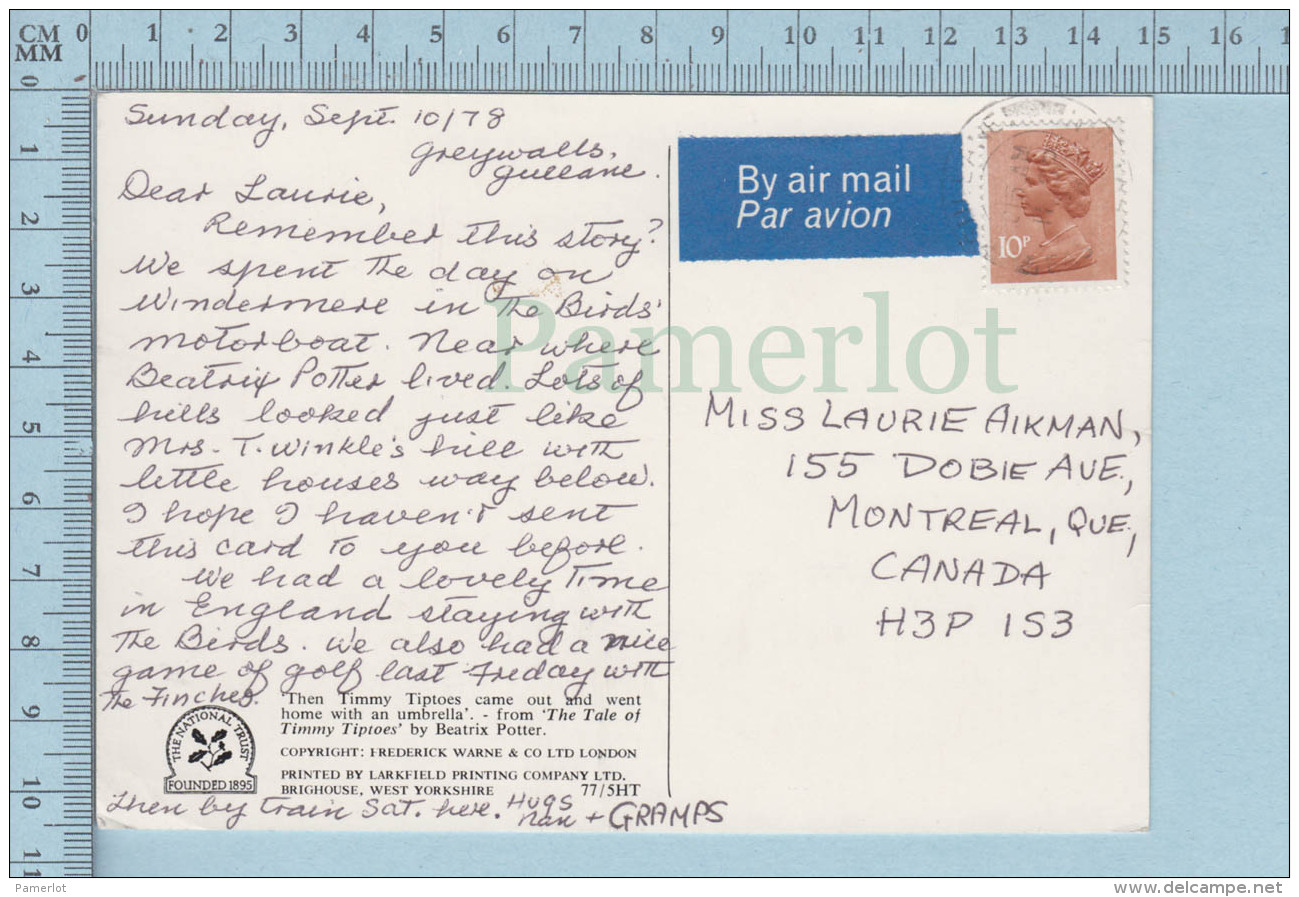 CM 0 1 2 3 4 5 6 7 8 9 10 11 12 13 14 15 16 1
MM
0
1
2
3
4
5
6
7
8
9
10
11
Sunday, Sept. 10/78
Greywalls,
Gullane.
Dear Laurie,
Remember this story?
We spent the day on
Windermere in the Birds'
motorboat. Near where
Beatrix Potter lived. Lots of
hills looked just like
Mrs. T. Winkle's hill with
little houses way below.
I hope I haven't sent
this card to you before.
We had a lovely time
in England staying with
the Birds. We also had a nice
game of golf last Friday with
the Finches.
Then by train Sat. here. Hugs
Nan + GRAMPS
'Then Timmy Tiptoes came out and went
home with an umbrella'. - from 'The Tale of
Timmy Tiptoes' by Beatrix Potter.
COPYRIGHT: FREDERICK WARNE & CO LTD LONDON
PRINTED BY LARKFIELD PRINTING COMPANY LTD.
BRIGHOUSE, WEST YORKSHIRE 77/5HT
THE NATIONAL TRUST
FOUNDED 1895
By air mail
Par avion
10P
Pamerlot
MISS LAURIE AIKMAN,
155 DOBIE AVE.,
MONTREAL, QUE.,
CANADA
H3P 1S3
Pamerlot
www.delcampe.net